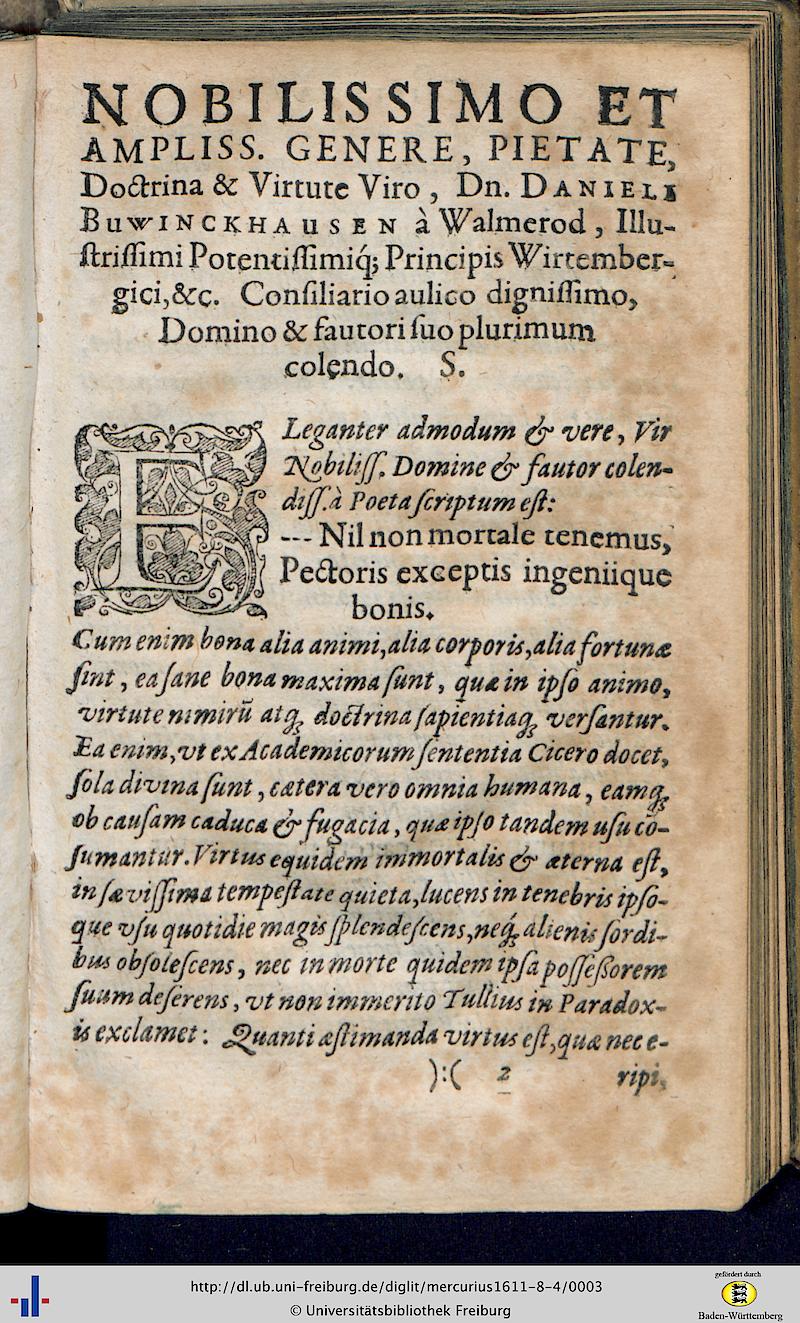 NOBILISSIMO ET
AMPLISS. GENERE, PIETATE,
Doctrina & Virtute Viro, Dn. DANIELI
BUWINCKHAUSEN à Walmerod, Illu-
ſtriſſimi Potentiſſimiq́; Principis Wirtember-
gici, &c. Conſiliario aulico digniſſimo,
Domino & fautori ſuo plurimum
colendo. S.
ELeganter admodum & vere, Vir
Nobiliſſ. Domine & fautor colen-
diſſ. à Poeta ſcriptum eſt:
--- Nil non mortale tenemus,
Pectoris exceptis ingeniique
bonis.
Cum enim bona alia animi, alia corporis, alia fortunæ
ſint, ea ſane bona maxima ſunt, quæ in ipſo animo,
virtute nimirū atq; doctrina ſapientiaq; verſantur.
Ea enim, vt ex Academicorum ſententia Cicero docet,
ſola divina ſunt, cætera vero omnia humana, eamq;
ob cauſam caduca & fugacia, quæ ipſo tandem uſu cō-
ſumantur. Virtus equidem immortalis & æterna eſt,
in ſæviſſima tempeſtate quieta, lucens in tenebris ipſo-
que vſu quotidie magis ſplendeſcens, neq́; alienis ſordi-
bus obſoleſcens, nec in morte quidem ipſa poſſeſſorem
ſuum deſerens, vt non immerito Tullius in Paradox-
is exclamet: Quanti æſtimanda virtus eſt, quæ nec e-
):( 2 ripi,
http://dl.ub.uni-freiburg.de/diglit/mercurius1611-8-4/0003
© Universitätsbibliothek Freiburg
gefördert durch
Baden-Württemberg